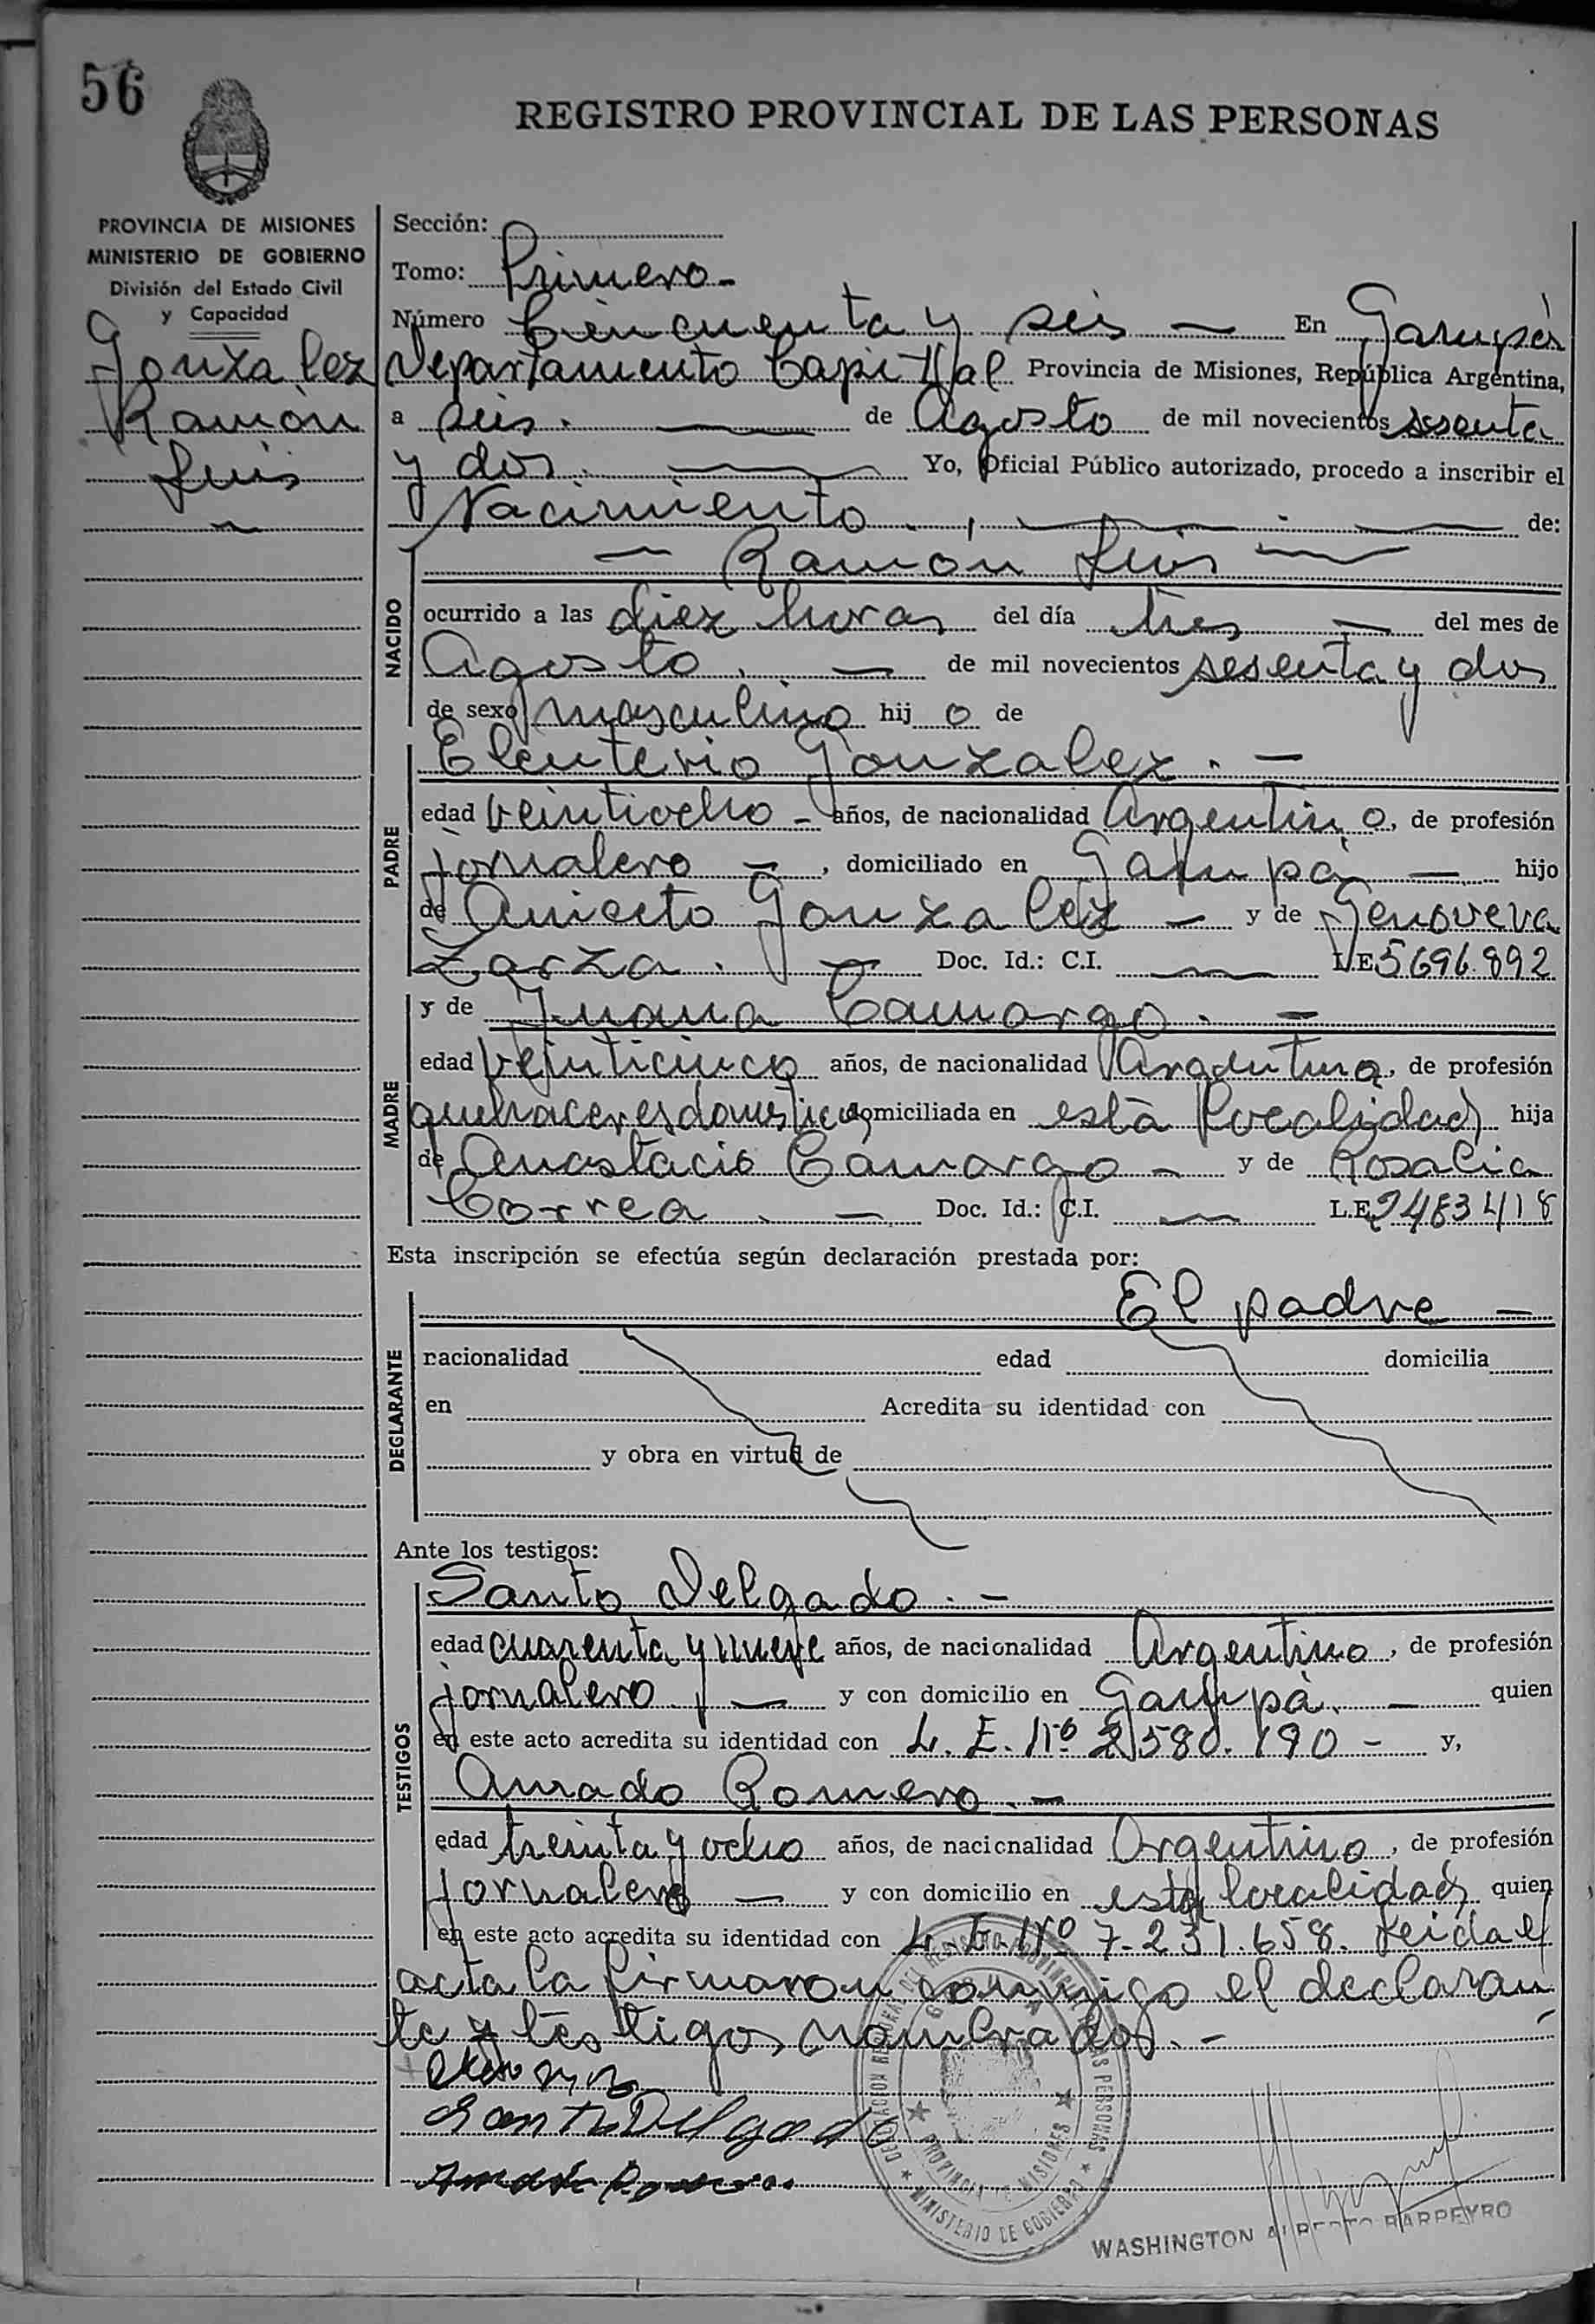 56
REGISTRO PROVINCIAL DE LAS PERSONAS
PROVINCIA DE MISIONES
MINISTERIO DE GOBIERNO
División del Estado Civil
y Capacidad
Gonzalez
Ramón
Luis
Sección:
Tomo: Primero -
Número Cincuenta y seis — En Garupá
Departamento Capital Provincia de Misiones, República Argentina,
a seis. — de Agosto de mil novecientos sesenta
y dos. — Yo, Oficial Público autorizado, procedo a inscribir el
Nacimiento. — de:
NACIDO
— Ramón Luis —
ocurrido a las diez horas del día tres — del mes de
Agosto. — de mil novecientos sesenta y dos
de sexo masculino hij o de
PADRE
Eleuterio Gonzalez. —
edad veintiocho - años, de nacionalidad Argentin o, de profesión
jornalero —, domiciliado en Garupá — hijo
de Aniceto Gonzalez — y de Genoveva
Zarza. — Doc. Id.: C.I. — L.E 5696.892
MADRE
y de Juana Camargo. —
edad veinticinco años, de nacionalidad Argentina, de profesión
quehaceres domesticos domiciliada en está localidad hija
de Anastacio Camargo - y de Rosalia
Correa. — Doc. Id.: C.I. — L.E. 2483418
Esta inscripción se efectúa según declaración prestada por:
DEGLARANTE
El padre —
nacionalidad edad domicilia
en Acredita su identidad con
y obra en virtud de
Ante los testigos:
TESTIGOS
Santo Delgado. —
edad cuarenta y nueve años, de nacionalidad Argentino, de profesión
jornalero. — y con domicilio en Garupá. — quien
en este acto acredita su identidad con L. E. Nº 2580.190 - y,
Amado Romero. —
edad treinta y ocho años, de nacionalidad Argentino, de profesión
jornalero — y con domicilio en esta localidad quien
en este acto acredita su identidad con L. E. Nº 7.231.658. Leida el
acta la firmaron conmigo el declaran
te y testigos nombrados. -
Santo Delgado
Amado Romero
PROVINCIA DE MISIONES
MINISTERIO DE GOBIERNO
WASHINGTON ALBERTO BARPEYRO